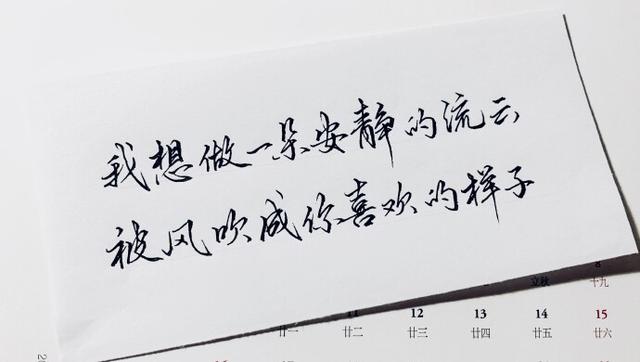 我想做一朵安静的流云
被风吹成你喜欢的样子
立秋 8
十九
11 12 13 14 15
廿一 廿二 廿三 廿四 廿五 廿六